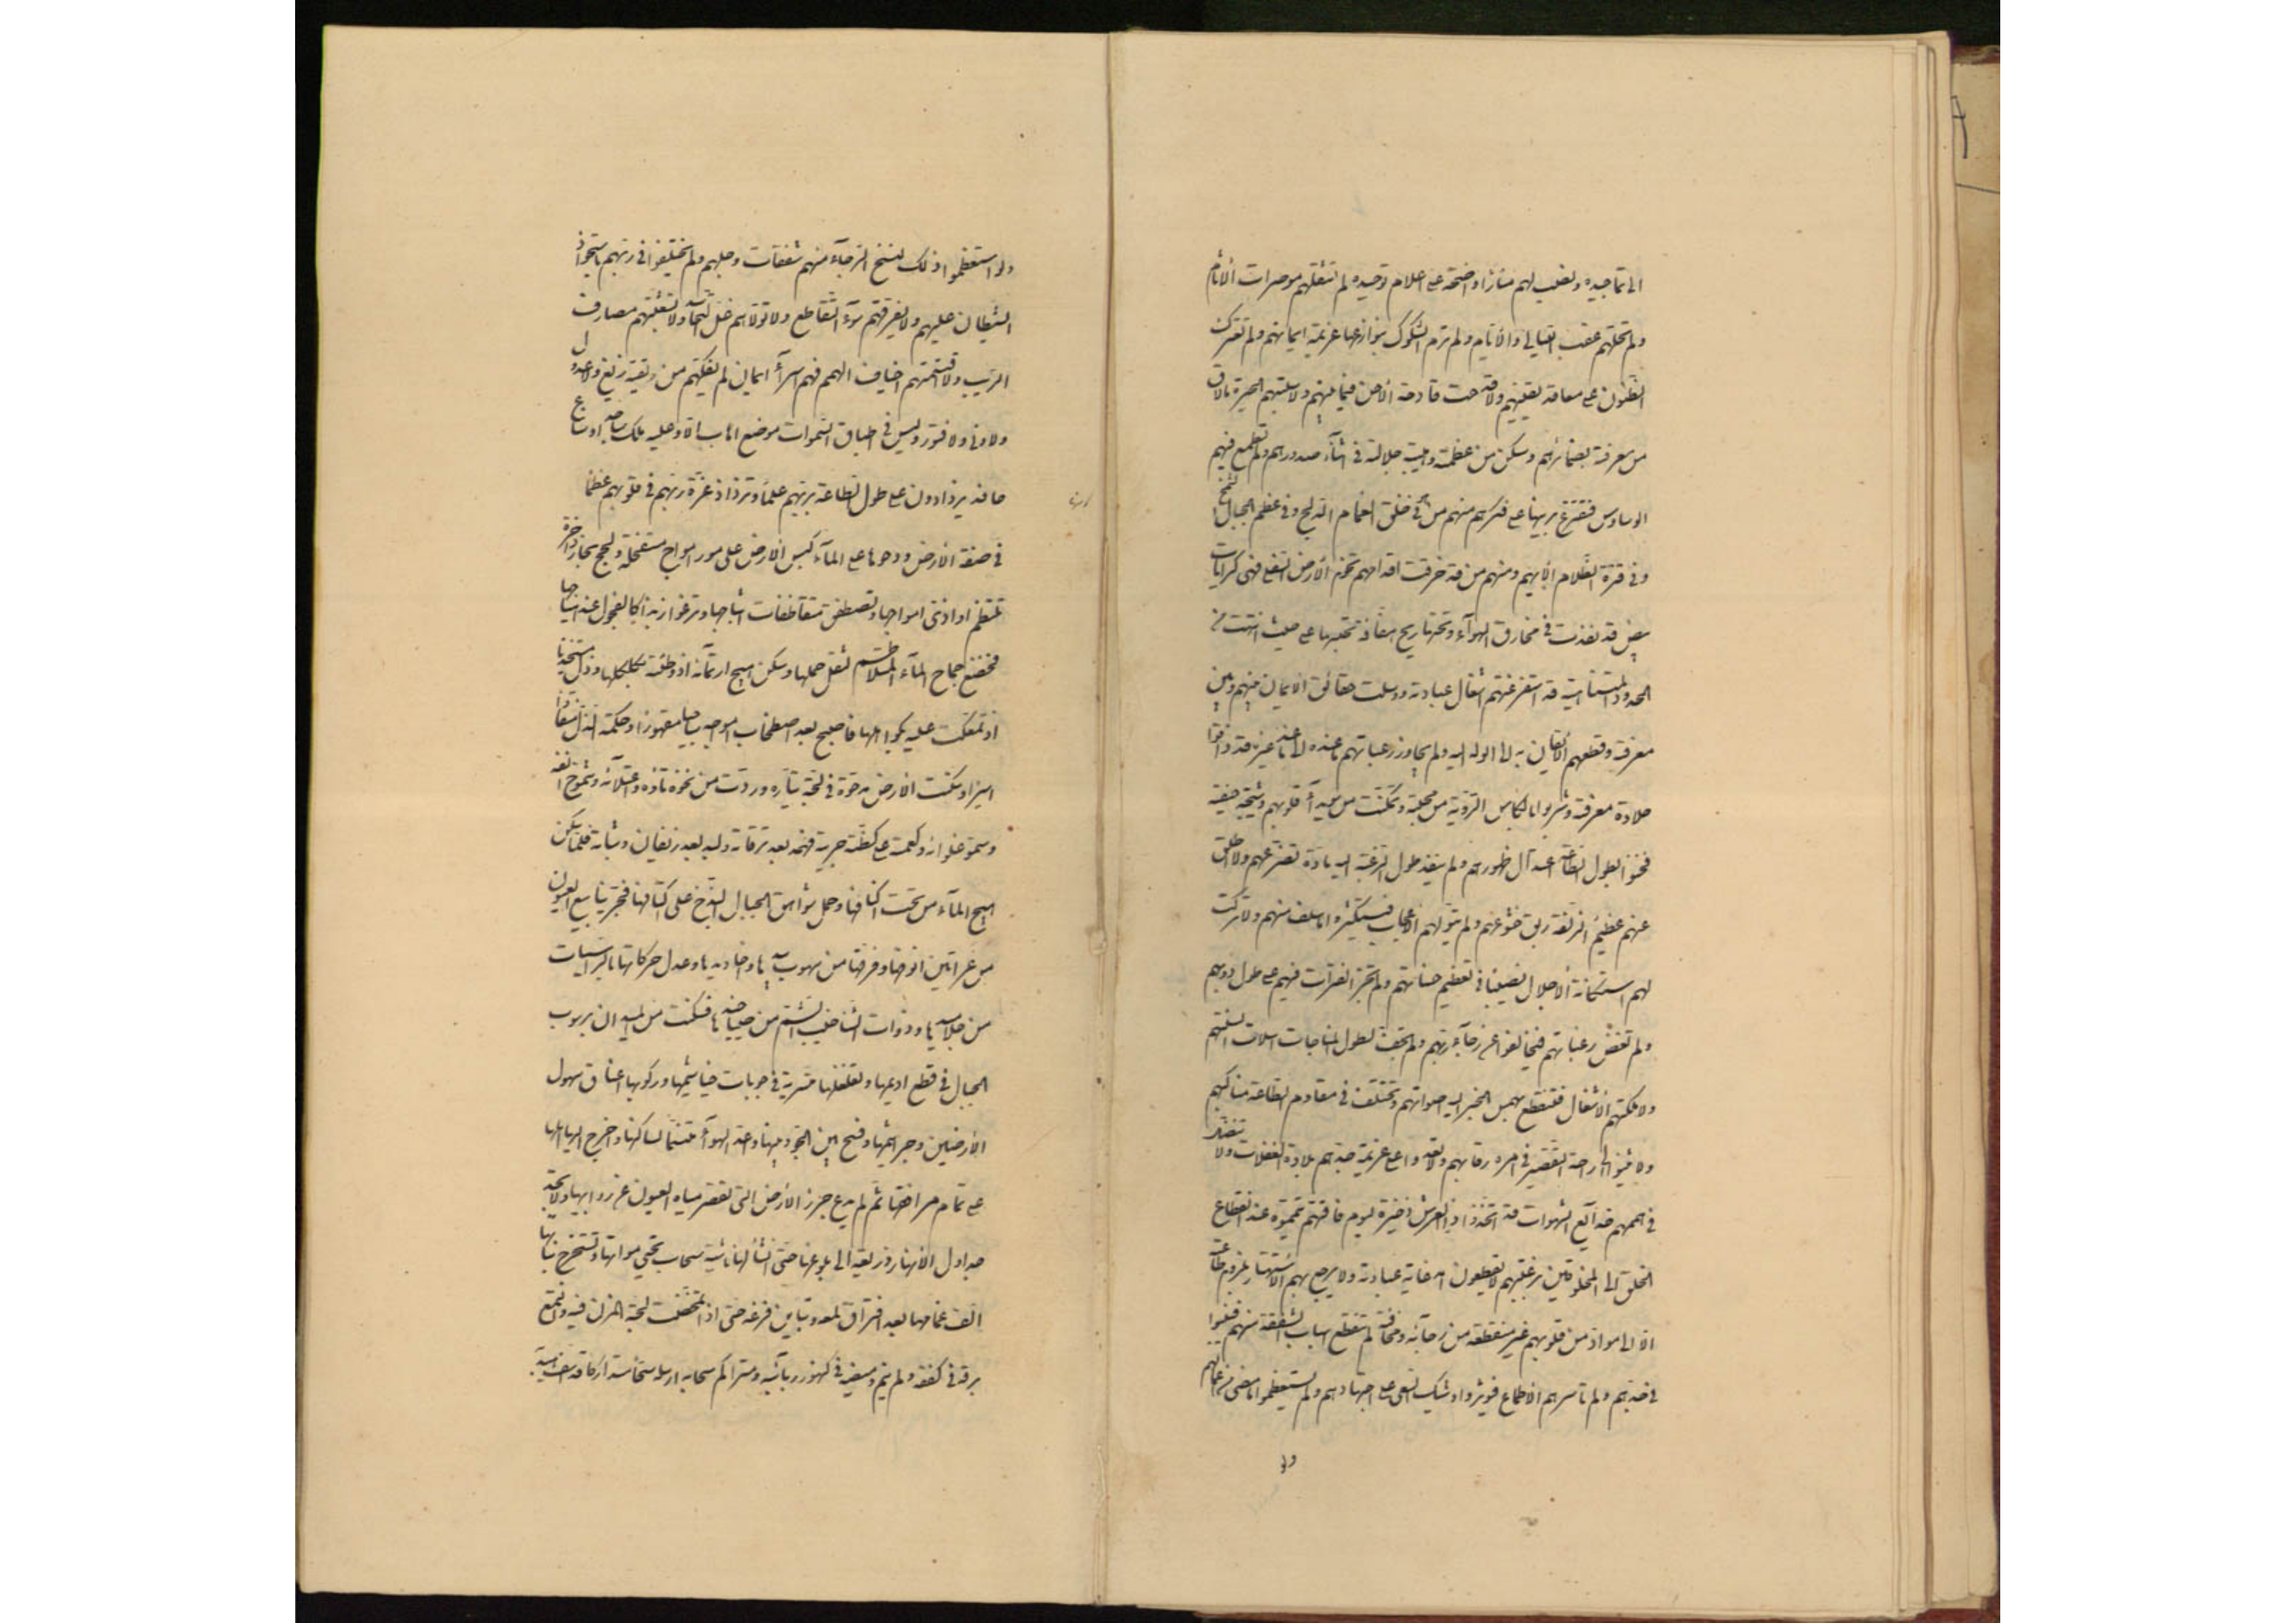 الى تماجيده ونصب لهم منارا واضحة على اعلام توحيده لم تثقلهم موصرات الاثام
ولم ترتحلهم عقب الليالي والايام ولم ترم الشكوك بنوازعها عزيمة ايمانهم ولم تعترك
الظنون على معاقد يقينهم ولا قدحت قادحة الاحن فيما بينهم ولا سلبتهم الحيرة ما لاق
من معرفته بضمائرهم وسكن من عظمته وهيبة جلالته في اثناء صدورهم ولم تطمع فيهم
الوساوس فتقترع برينها على فكرهم منهم من هو في خلق الغمام الدلح وفي عظم الجبال الشمخ
وفي قترة الظلام الايهم ومنهم من قد خرقت اقدامهم تخوم الارض السفلى فهي كرايات
بيض قد نفذت في مخارق الهوآء وتحتها ريح هفافة تحبسها على حيث انتهت من
الحدود المتناهية قد استفرغتهم اشغال عبادته ووسلت حقائق الايمان بينهم وبين
معرفته وقطعهم الايقان به الى الوله اليه ولم تجاوز رغباتهم ما عنده الى ما عند غيره قد ذاقوا
حلاوة معرفته وشربوا بالكاس الروية من محبته وتمكنت من سويدآء قلوبهم وشيجة خيفته
فحنوا بطول الطاعة اعتدال ظهورهم ولم ينفد طول الرغبة اليه مادة تضرعهم ولا اطلق
عنهم عظيم الزلفة ربق خشوعهم ولم يتولهم الاعجاب فيستكثروا ما سلف منهم ولا تركت
لهم استكانة الاجلال نصيبا في تعظيم حسناتهم ولم تجر الفترات فيهم على طول دؤوبهم
ولم تغض رغباتهم فيخالفوا عن رجآء ربهم ولم تجف لطول المناجات اسلات السنتهم
ولا ملكتهم الاشغال فتنقطع بهمس الخير اليه اصواتهم ولم تختلف في مقاوم الطاعة مناكبهم
ولم يثنوا الى راحة التقصير في امره رقابهم ولا تعدوا على عزيمة جدهم بلادة الغفلات ولا تنتضل
في هممهم خدآئع الشهوات قد اتخذوا ذا العرش ذخيرة ليوم فاقتهم ويمموه عند انقطاع
الخلق الى المخلوقين برغبتهم لا يقطعون امد غاية عبادته ولا يرجع بهم الاستهتار بلزوم طاعته
الا الى مواد من قلوبهم غير منقطعة من رجآئه ومخافته لم تنقطع اسباب الشفقة منهم فينوا
في جدهم ولم تاسرهم الاطماع فيؤثروا وشيك السعي على اجتهادهم ولم يستعظموا ما مضى من اعمالهم
ولو
ولو استعظموا ذلك لنسخ الرجآء منهم شفقات وجلهم ولم يختلفوا في ربهم باستحواذ
الشيطان عليهم ولم يفرقهم سوء التقاطع ولا تولاهم غل التحاسد ولا شعبتهم مصارف
الريب ولا اقتسمتهم اخياف الهمم فهم اسرآء ايمان لم يفكهم من ربقته زيغ ولا عدول
ولا ونى ولا فتور وليس في اطباق السموات موضع اهاب الا وعليه ملك ساجد او ساع
حافد يزدادون على طول الطاعة بربهم علما وتزداد عزة ربهم في قلوبهم عظما
في صفة الارض ودحوها على المآء كبس الارض على مور امواج مستفحلة ولجج بحار زاخرة
تلتطم اواذي امواجها وتصطفق متقاذفات اثباجها وترغو زبدا كالفحول عند هياجها
فخضع جماح المآء المتلاطم لثقل حملها وسكن هيج ارتمائه اذ وطئته بكلكلها وذل مستخذيا
اذ تمعكت عليه بكواهلها فاصبح بعد اصطخاب امواجه ساجيا مقهورا وفي حكمة الذل منقادا
اسيرا وسكنت الارض مدحوة في لجة تياره وردت من نخوة بأوه واعتلآئه وشموخ انفه
وسمو غلوائه وكعمته على كظة جريته فهمد بعد نزقاته ولبد بعد زيفان وثباته فلما سكن
هيج المآء من تحت اكنافها وحمل شواهق الجبال البذخ على اكتافها فجر ينابيع العيون
من عرانين انوفها وفرقها في سهوب بيدها واخاديدها وعدل حركاتها بالراسيات
من جلاميدها وذوات الشناخيب الشم من صياخيدها فسكنت من الميدان برسوب
الجبال في قطع اديمها وتغلغلها متسربة في جوبات خياشيمها وركوبها اعناق سهول
الارضين وجراثيمها وفسح بين الجو وبينها واعد الهوآء متنسما لساكنها واخرج اليها اهلها
على تمام مرافقها ثم لم يدع جرز الارض التي تقصر مياه العيون عن روابيها ولا تجد
جداول الانهار ذريعة الى بلوغها حتى انشأ لها ناشئة سحاب تحيي مواتها وتستخرج نباتها
الف غمامها بعد افتراق لمعه وتباين قزعه حتى اذا تمخضت لجة المزن فيه والتمع
برقه في كففه ولم ينم وميضه في كنهور ربابه ومتراكم سحابه ارسله سحا متداركا قد اسف هيدبه